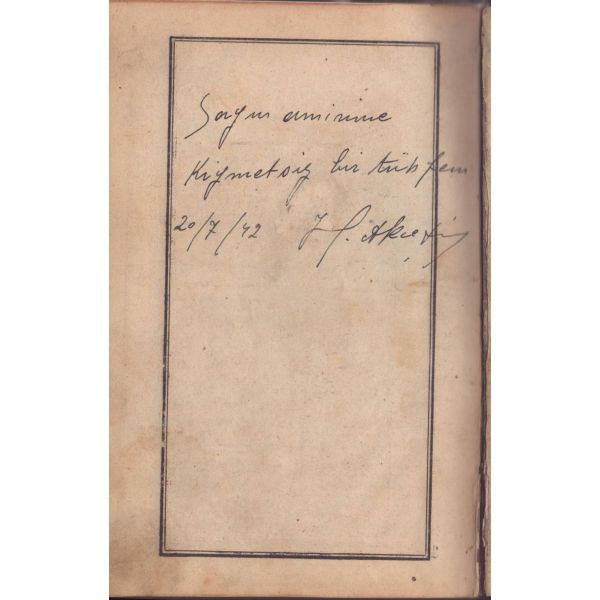 Sayın amirime
Kıymetsiz bir tühfem
20/7/42